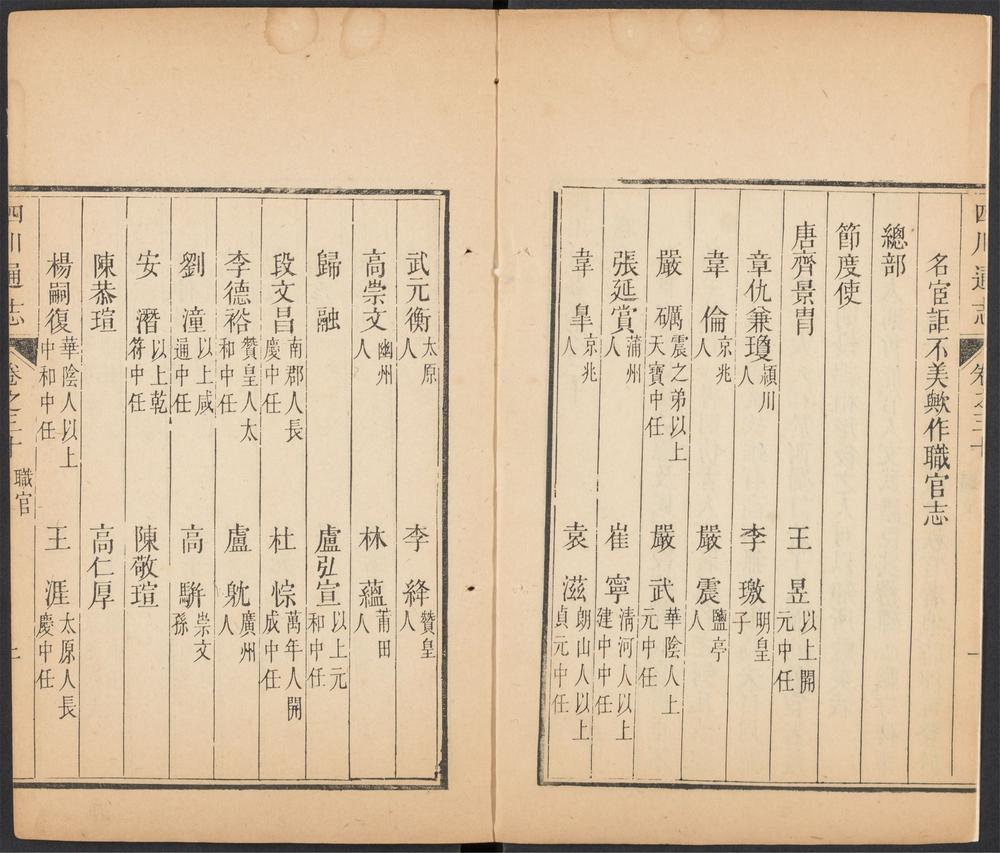 四川通志 卷之三十 一
名宦詎不美歟作職官志
總部
節度使
唐齊景胄 王昱以上開元中任
章仇兼瓊潁川人 李璬明皇子
韋倫京兆人 嚴震鹽亭人
嚴礪震之弟以上天寶中任 嚴武華陰人上元中任
張延賞蒲州人 崔寧淸河人以上建中中任
韋臯京兆人 袁滋朗山人以上貞元中任
武元衡太原人 李絳贊皇人
高崇文幽州人 林蘊莆田人
歸融 盧弘宣以上元和中任
段文昌南郡人長慶中任 杜悰萬年人開成中任
李德裕贊皇人太和中任 盧躭廣州人
劉潼以上咸通中任 高駢崇文孫
安潛以上乾符中任 陳敬瑄
陳恭瑄 高仁厚
楊嗣復華陰人以上中和中任 王涯太原人長慶中任
四川通志 卷之三十 職官